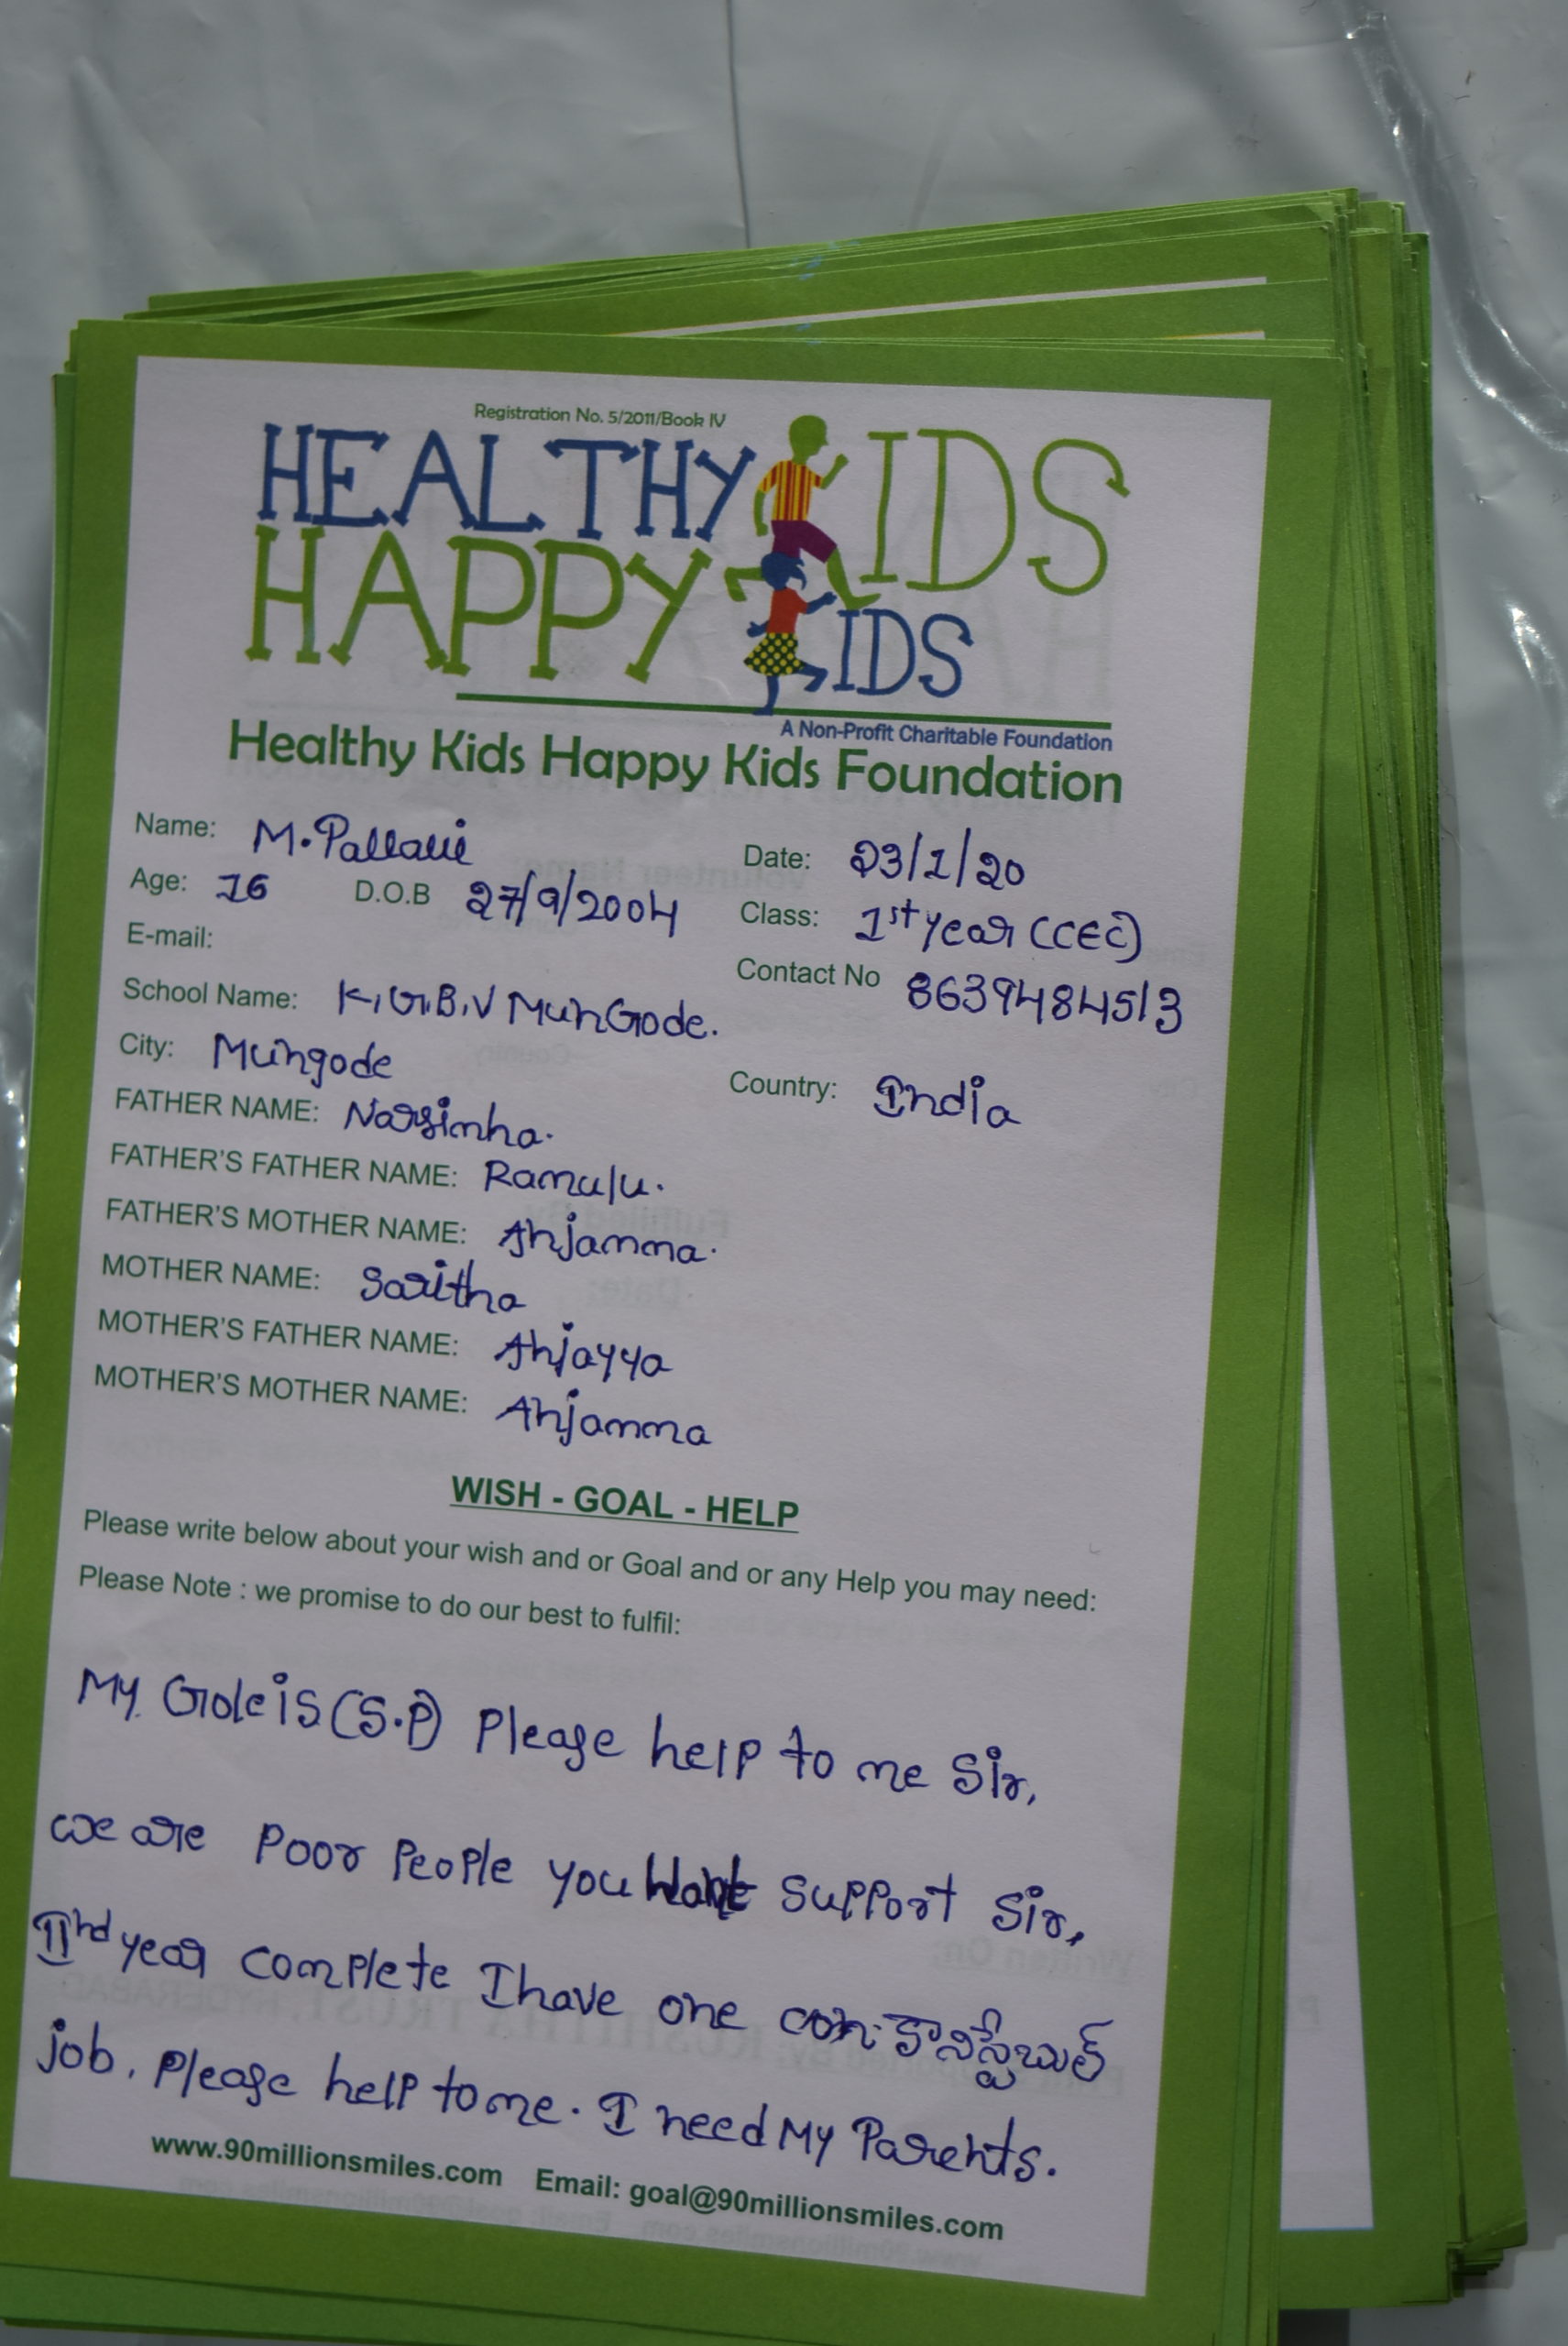 Registration No. 5/2011/Book IV
HEALTHY KIDS
HAPPY KIDS
A Non-Profit Charitable Foundation
Healthy Kids Happy Kids Foundation
Name: M.Pallavi Date: 23/1/20
Age: 16 D.O.B 27/9/2004 Class: 1st year (CEC)
E-mail: Contact No 8639484513
School Name: K.G.B.V MunGode.
City: Mungode Country: India
FATHER NAME: Narsimha.
FATHER'S FATHER NAME: Ramulu.
FATHER'S MOTHER NAME: Anjamma.
MOTHER NAME: Saritha
MOTHER'S FATHER NAME: Anjayya
MOTHER'S MOTHER NAME: Anjamma
WISH - GOAL - HELP
Please write below about your wish and or Goal and or any Help you may need:
Please Note : we promise to do our best to fulfil:
My Gole is (S.P) Please help to me Sir,
we are Poor People you support Sir,
IInd year complete I have one con. కానిస్టేబుల్
job. Please help to me. I need My Parents.
www.90millionsmiles.com Email: goal@90millionsmiles.com